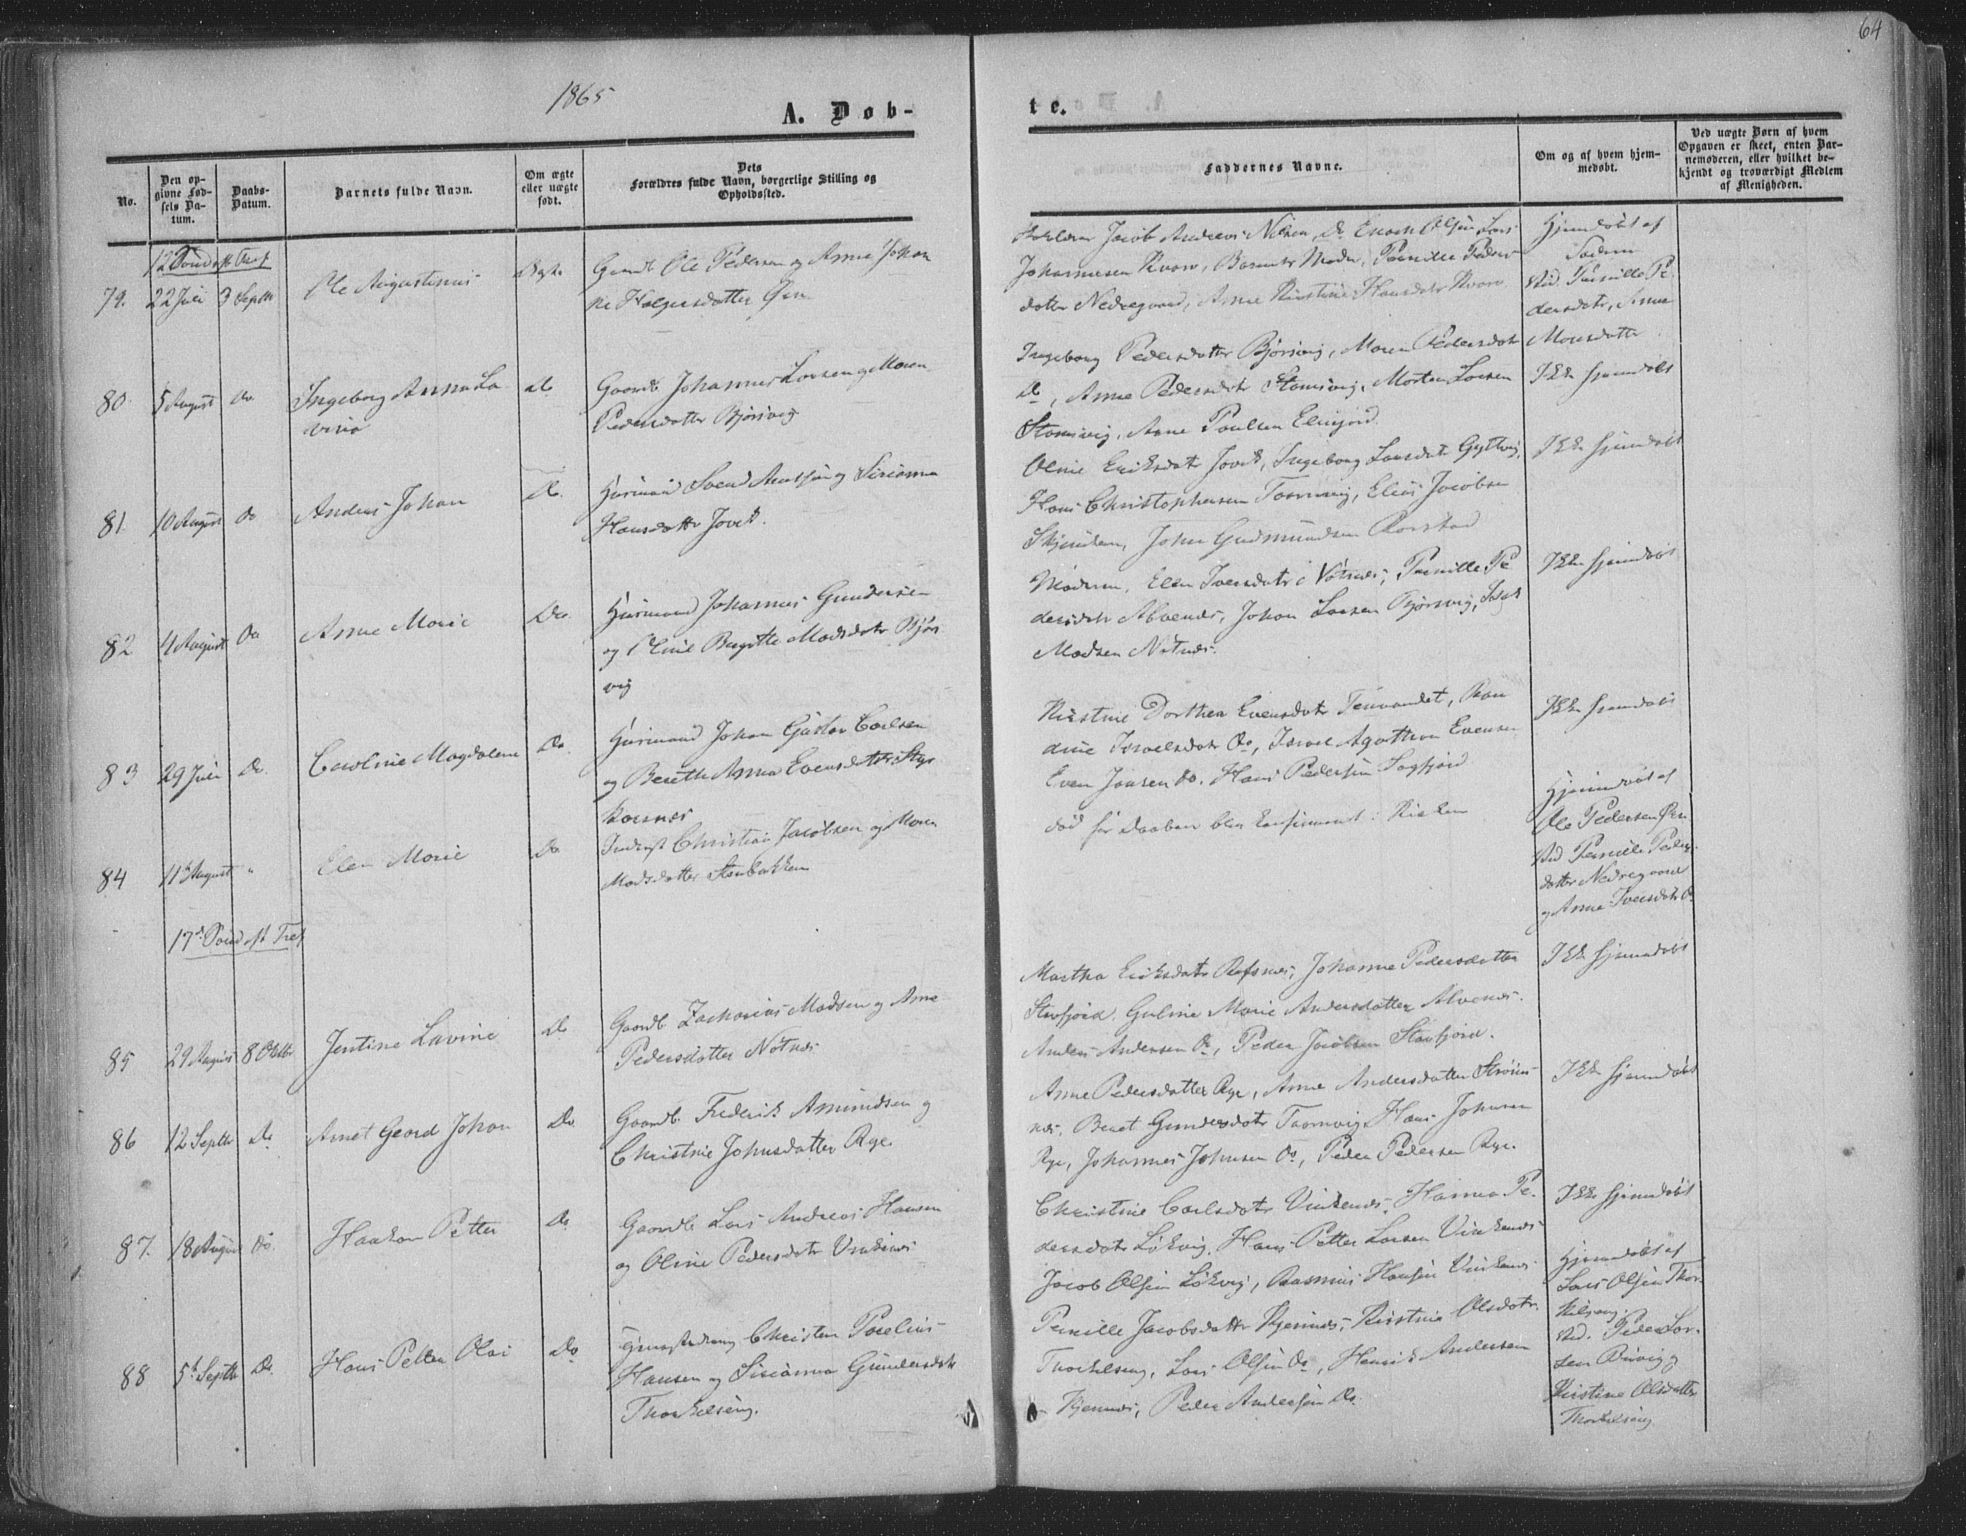 64
1865
A. Døb-
te.
No.
Den op-
givne Fød-
sels Da-
tum.
Daabs-
Datum.
Barnets fulde Navn.
Om ægte
eller uægte
født.
Dets
Forældres fulde Navn, borgerlige Stilling og
Opholdssted.
Faddernes Navne.
Om og af hvem hjem-
medøbt.
Ved uægte Børn af hvem
Opgaven er skeet, enten Bar-
nemoderen, eller hvilket be-
kjendt og troværdigt Medlem
af Menigheden.
79.
22 Juli
3 Septbr
Ole Augustinus
Ægte
Gaardb Ole Pedersen og Anne Johan
ne Holgersdatter Øren
Jacob Andreas Nilsen, Do Enoch Olsen, Lars
Johannesen Kvarv, Barnets Moder, Pernille Peders-
datter Nedregaard, Anne Kirstine Hansdatr Kvarv
Hjemdøbt af
Faderen
stid. Pernille Pe
dersdatr, Anne
Monsdatter
80.
5 August
do
Ingeborg Anna La
vina
do
Gaardb Johannes Larsen og Maren
Pedersdatter Bjørsvig
Ingeborg Pedersdatter Bjørsvig, Maren Pedersdatr
Do, Anne Pedersdatr Stamsvig, Morten Larsen
Stamsvig, Arne Paulsen Elvefjord
Ikke hjemdøbt
81
10 August
do
Anders Johan
Do.
Huusmand Svend Arntsen og Sirianna
Hansdatter Jovik.
Oline Eriksdatr Jovik, Ingeborg Larsdatr Gyltvig,
Hans Christophersen Tosvnvig, Elias Jacobsen
John Gudmundsen Rorstad
Ikke hjemdøbt
82
4 August
do
Anne Marie
Do
Huusmand Johannes Gundersen
og Oline Birgitte Madsdatr Bjørs
vig
Moderen, Elen Iversdatr Nøtnæs, Pernille Pe
dersdatr Alvenæs, Johan Larsen Bjørsvig, Isak
Madsen Nøtnæs.
Ikke hjemdøbt
83
29 Juli
do
Caroline Magdalena
Do
Huusmand Johan Gustav Carlsen
og Bereth Anna Evensdatter Styr
korsnæs
Kirstine Dorthea Evensdatr Tennvandet, Ran
dine Israelsdatr Do, Israel Agathon Evensen
Even Jonsen do. Hans Pedersen Sagfjord
Ikke hjemdøbt
84
11te August
"
Elen Marie
Do
Inderst Christian Jacobsen og Maren
Madsdatter Stenbakken
død før Daaben blev confirmeret i Kirken
Hjemmedøbt af
Ole Pedersen Øren
stid Pernille Peders-
datter Nedregaard
og Anne Iversdatr do
17de Sønd eft Tref
85
29 August
8 Oktbr
Jentine Lavine
Do
Gaardb Zacharias Madsen og Ane
Pedersdatter Nøtnæs
Martha Eriksdatr Røfsnæs, Johanne Pedersdatter
Stavfjord, Guline Marie Andersdatter Alvenæs.
Anders Andersen Do, Peder Jacobsen Stavfjord.
Ikke hjemdøbt
86
12 Septbr
do
Arnet Georg Johan
Do
Gaardb Frederik Amundsen og
Christine Johnsdatter Rye.
Anne Pedersdatter Rye, Anne Andersdatter Strøms-
næs, Beret Gundersdatr Tosvnvig, Hans Johnsen
Rye, Johannes Johnsen Do, Peder Pedersen Rye.
Ikke hjemdøbt
87.
18 August
do.
Haakon Petter
Do
Gaardb Lars Andreas Hansen
og Oline Pedersdatr Vinkenæs
Christine Carlsdatr Vinkenæs, Hanna Pe-
dersdatr Løkvig, Hans Petter Larsen Vinkenæs
Jacob Olsen Løkvig, Rasmus Hansen Vinkenæs
Ikke hjemdøbt
88
5te Septbr
Do.
Hans Petter Olai
Do
Christen Porelius
Hansen og Sirianna Gundersdatr
Thorkelseng.
Pernille Jacobsdatter Kjernnæs, Kirstine Olsdatr
Thorkelseng, Lars Olsen Do, Henrik Andersen
Kjernnæs, Peder Andersen Do.
Hjemmedøbt af
Lars Olsen Thor-
kelseng.
stid. Peder Lar-
sen og
Kirstine Olsdatter
Thorkelseng